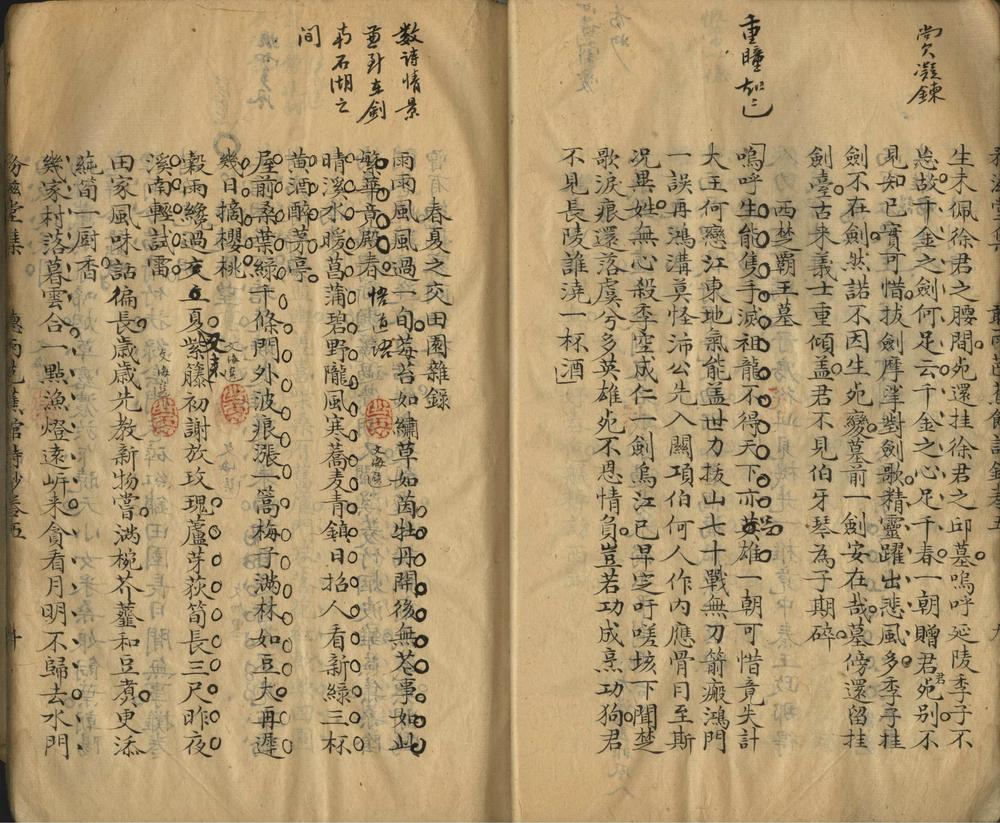 欠凝鍊
生未佩徐君之腰間死還挂徐君之邱墓嗚呼延陵季子不
忘故千金之劍何足云千金之心足千春一朝贈君死別不
見知己實可惜拔劍摩挲對劍歌精靈躍出悲風多季子挂
劍不在劍然諾不因生死變墓前一劍安在哉墓傍還留挂
劍臺古来義士重傾盖君不見伯牙琴為子期碎
重瞳知己
西楚霸王墓
嗚呼生能隻手滅祖龍不得天下亦英雄一朝可惜竟失計
大王何戀江東地氣能盖世力拔山七十戰無刀箭瘢鴻門
一誤再鴻溝莫怪沛公先入關項伯何人作内應骨肉至斯
况異姓無心殺季空成仁一劍烏江已早定吁嗟垓下聞楚
歌淚痕還落虞兮多英雄死不恩情負豈若功成烹功狗君
不見長陵誰澆一杯酒
数詩情景
並到在劍
南石湖之
间
春夏之交田園雜錄
雨雨風風過一旬莓苔如繡草如茵牡丹開後無花事如此
繁華竟殿春
悟道語
晴溪水暖菖蒲碧野隴風寒蕎麦青鎮日招人看新綠三杯
黄酒醉茅亭
屋前桑葉綠千條門外波痕漲一篙梅子滿林如豆大再遲
幾日摘櫻桃
穀雨纔過立夏紫籐初謝放玫瑰蘆芽荻筍長三尺昨夜
又来
溪南輕試雷
田家風味話偏長歲歲先教新物嘗滿椀芥虀和豆煑更添
蒓筍一厨香
幾家村落暮雲合一點漁燈遠岍来貪看月明不歸去水門